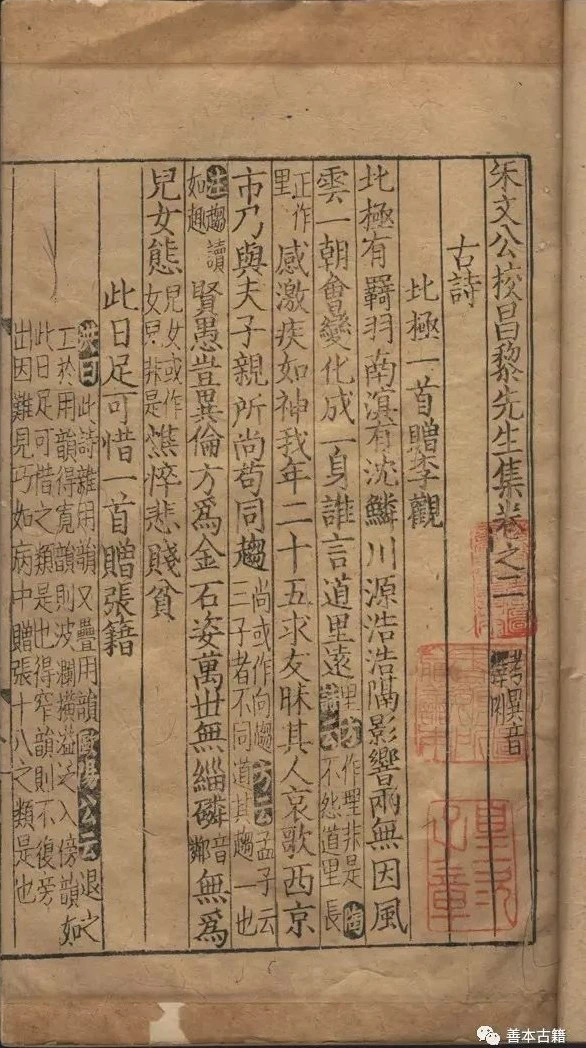 朱文公校昌黎先生集卷之二 考異音釋附
古詩
北極一首贈李觀
北極有羇羽南溟有沈鱗川源浩浩隔影響兩無因風
雲一朝會變化成一身誰言道里遠里方作理非是陶詩云不然道里長
正作里感激疾如神我年二十五求友昧其人哀歌西京
市乃與夫子親所尚苟同趨尚或作向趨方云孟子云三子者不同道其趨一也
注趨讀如趣賢愚豈異倫方爲金石姿萬世無緇磷音鄰無爲
兒女態兒女或作女兒非是憔悴悲賤貧
此日足可惜一首贈張籍
洪曰此詩雜用韻又疊用韻歐陽公云退之
工於用韻得寬韻則波瀾橫溢泛入傍韻如
此日足可惜之類是也得窄韻則不復旁
出因難見巧如病中贈張十八之類是也
善本古籍